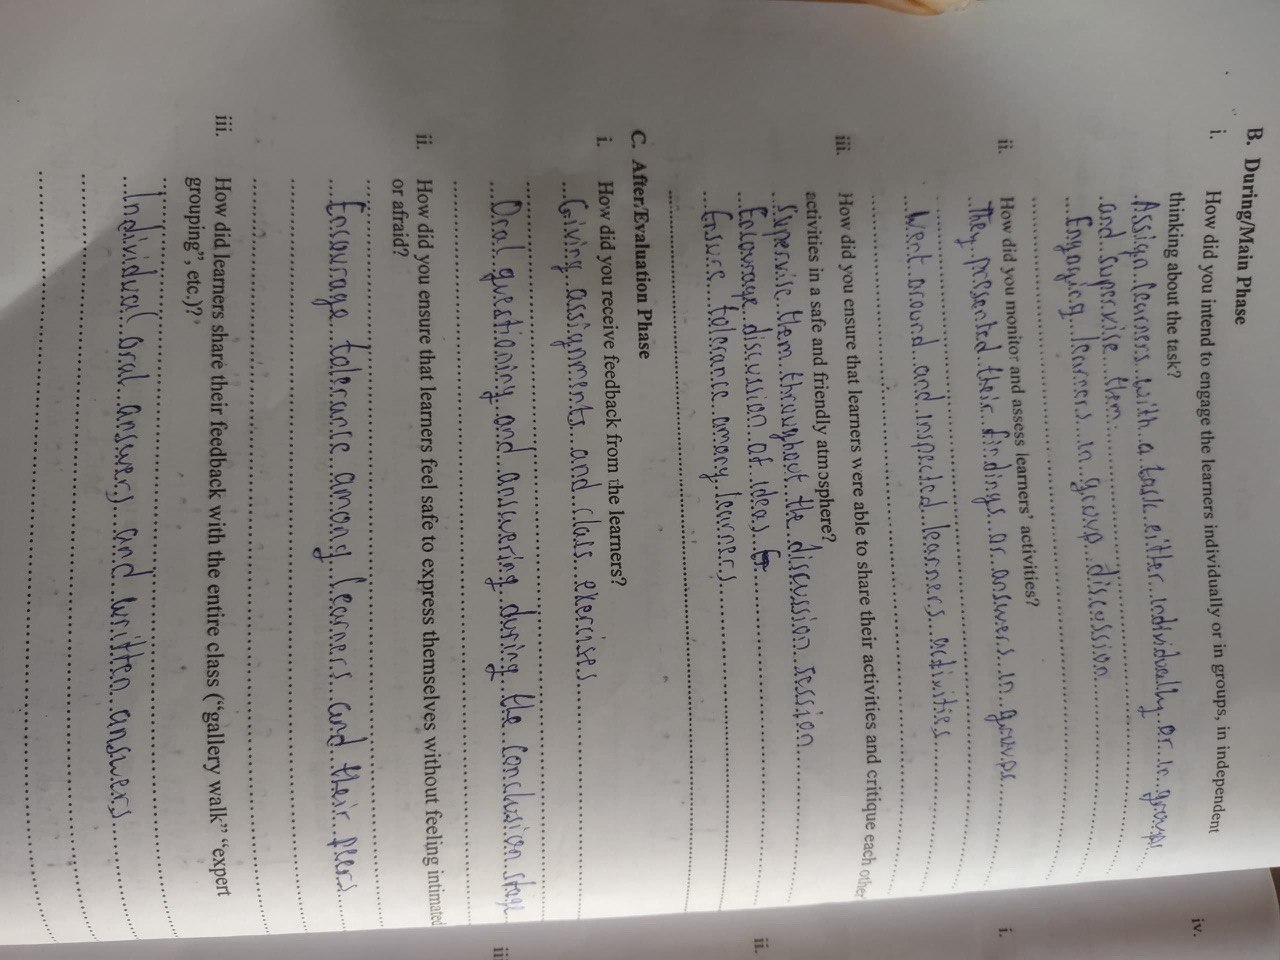 B. During/Main Phase
i. How did you intend to engage the learners individually or in groups, in independent
thinking about the task?
Assign learners with a task either individually or in groups
and supervise them.
Engaging learners in group discussion
ii. How did you monitor and assess learners' activities?
They presented their findings or answers in groups
Went around and inspected learners activities
iii. How did you ensure that learners were able to share their activities and critique each other
activities in a safe and friendly atmosphere?
Supervise them throughout the discussion session
Encourage discussion of ideas
Ensure tolerance among learners
C. After/Evaluation Phase
i. How did you receive feedback from the learners?
Giving assignments and class exercises
Oral questioning and answering during the conclusion stage
ii. How did you ensure that learners feel safe to express themselves without feeling intimated
or afraid?
Encourage tolerance among learners and their peers
iii. How did learners share their feedback with the entire class ("gallery walk" "expert
grouping", etc.)?
Individual oral answers and written answers
iv.
i.
ii.